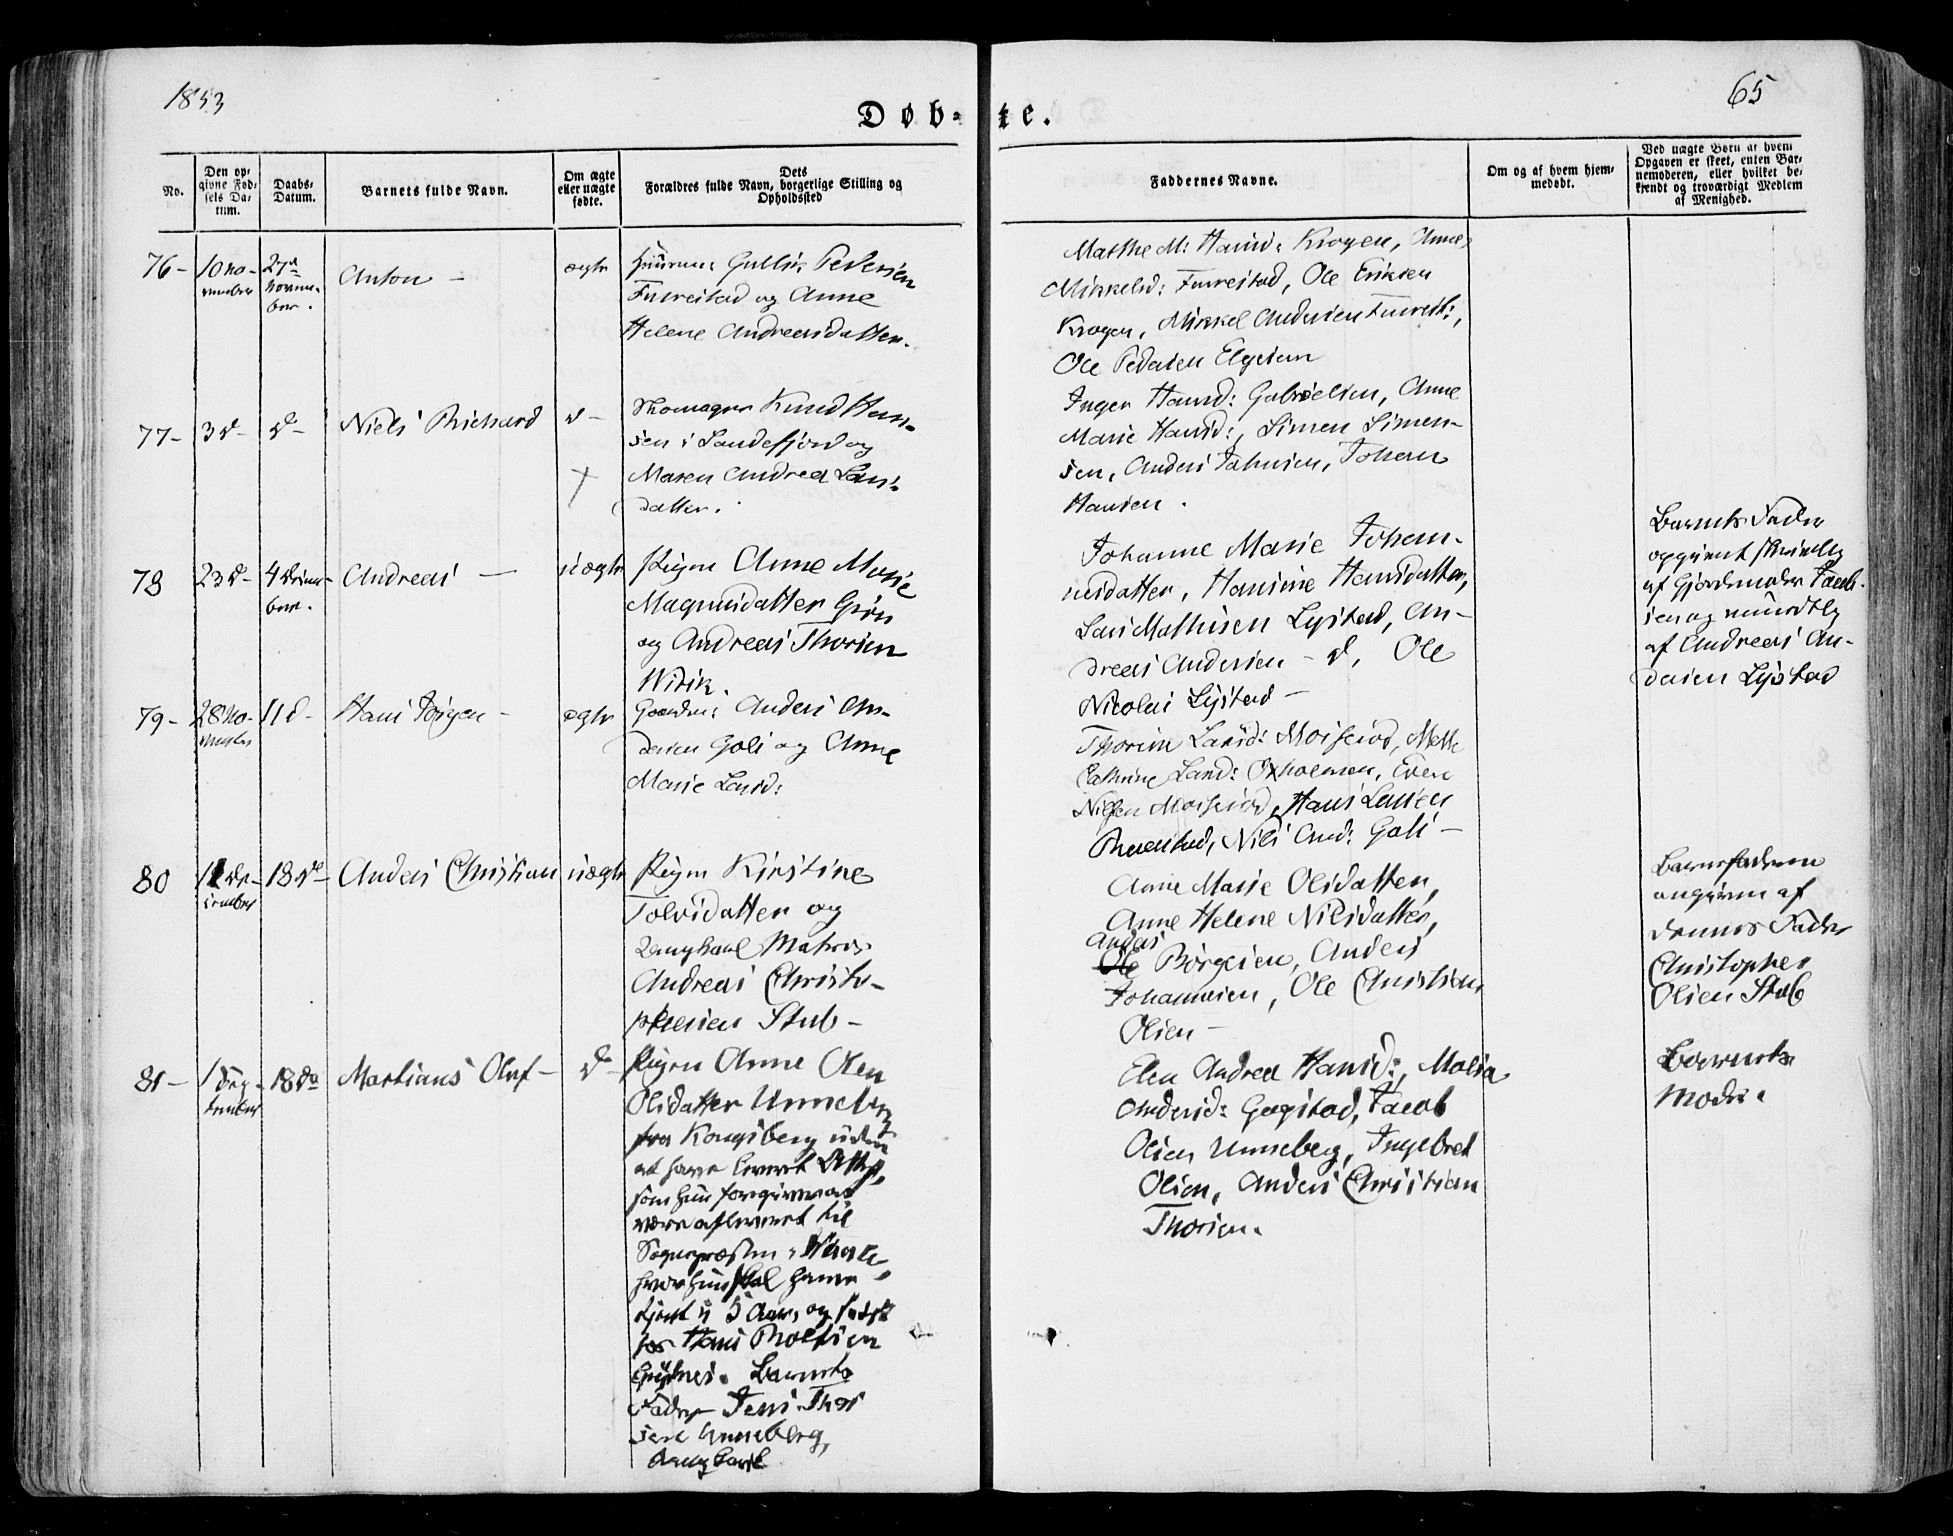 1853
65
Døb-
te.
No.
Den op-
givne Fød-
sels Da-
tum.
Daabs-
Datum.
Barnets fulde Navn.
Om ægte
eller uægte
fødte.
Dets
Forældres fulde Navn, borgerlige Stilling og
Opholdssted
Faddernes Navne.
Om og af hvem hjem-
medøbt.
Ved uægte Børn af hvem
Opgaven er skeet, enten Bar-
nemoderen, eller hvilket be-
kjendt og troværdigt Medlem
af Menighed.
76-
10 no-
vember
27d
novem-
ber.
Anton -
ægte
Huusm: Gullik Pedersen
Furrestad og Anne
Helene Andreasdatter.
Marthe M: Hansd: Krogen, Anne
Mikkelsd: Furrestad, Ole Eriksen
Krogen, Mikkel Andersen Furrest:,
Ole Pedersen Elgesem
77-
3 d-
d-
Niels Richard
d-
Skomager Knud Han-
sen i Sandefjord og
Maren Andrea Lars-
datter.
Inger Hansd: Gabrielsen, Anne
Marie Hansd:, Simen Simen-
sen, Anders Johnsen, Johan
Hansen.
78
23 d-
4 Decem-
ber.
Andreas -
uægte
Pigen Anne Marie
Magnusdatter Grøn
og Andreas Thorsen
Widik.
Johanne Marie Johan-
nesdatter, Hansine Hansdatter,
Lars Mathisen Lystad, An-
dreas Andersen - d, Ole
Nicolai Lystad -
Barnets Fader
opgivent skriftlig
af Gjordemoder Jacob-
sen og mundtlig
af Andreas An-
dersen Lystad
79-
28 no-
vember
11 d-
Hans Jørgen -
ægte
Gaardm: Anders An-
dersen Goli og Anne
Marie Larsd:
Thorine Larsd: Moiserød, Mette
Cathrine Larsd: Oxholmen, Even
Nilsen Moiserød, Hans Larsen
Ruerstad, Nils And: Goli -
80
11 De-
cember
18 de
Anders Christian
uægte
Pigen Kirstine
Tolvsdatter og
Ungkarl Matros
Andreas Christo-
phersen Stub -
Anne Marie Olsdatter,
Anne Helene Nilsdatter,
Anders
Ole Børgesen, Anders
Johannesen, Ole Christian
Olsen -
Barnefaderen
angiven af
dennes Fader
Christopher
Olsen Stub
81 -
1 Sep-
tember
18 do
Martinus Oluf -
d-
Pigen Anne Olea
Olsdatter Unneberg
fra Kongsberg uden
at have leveret Attest,
som hun foregiver at
være afleveret til
Sognepræsten i
hvor hun skal have
tjent i 5 Aar, og sidst
hos Hans Rolfsen
Barnets
Fader Jens Thor
sen Unneberg,
Ungkarl
Elen Andrea Hansd:, Maria
Andersd: Gogstad, Jacob
Olsen Unneberg, Ingebret
Olsen, Anders Christian
Thorsen.
Barnets
Moder.